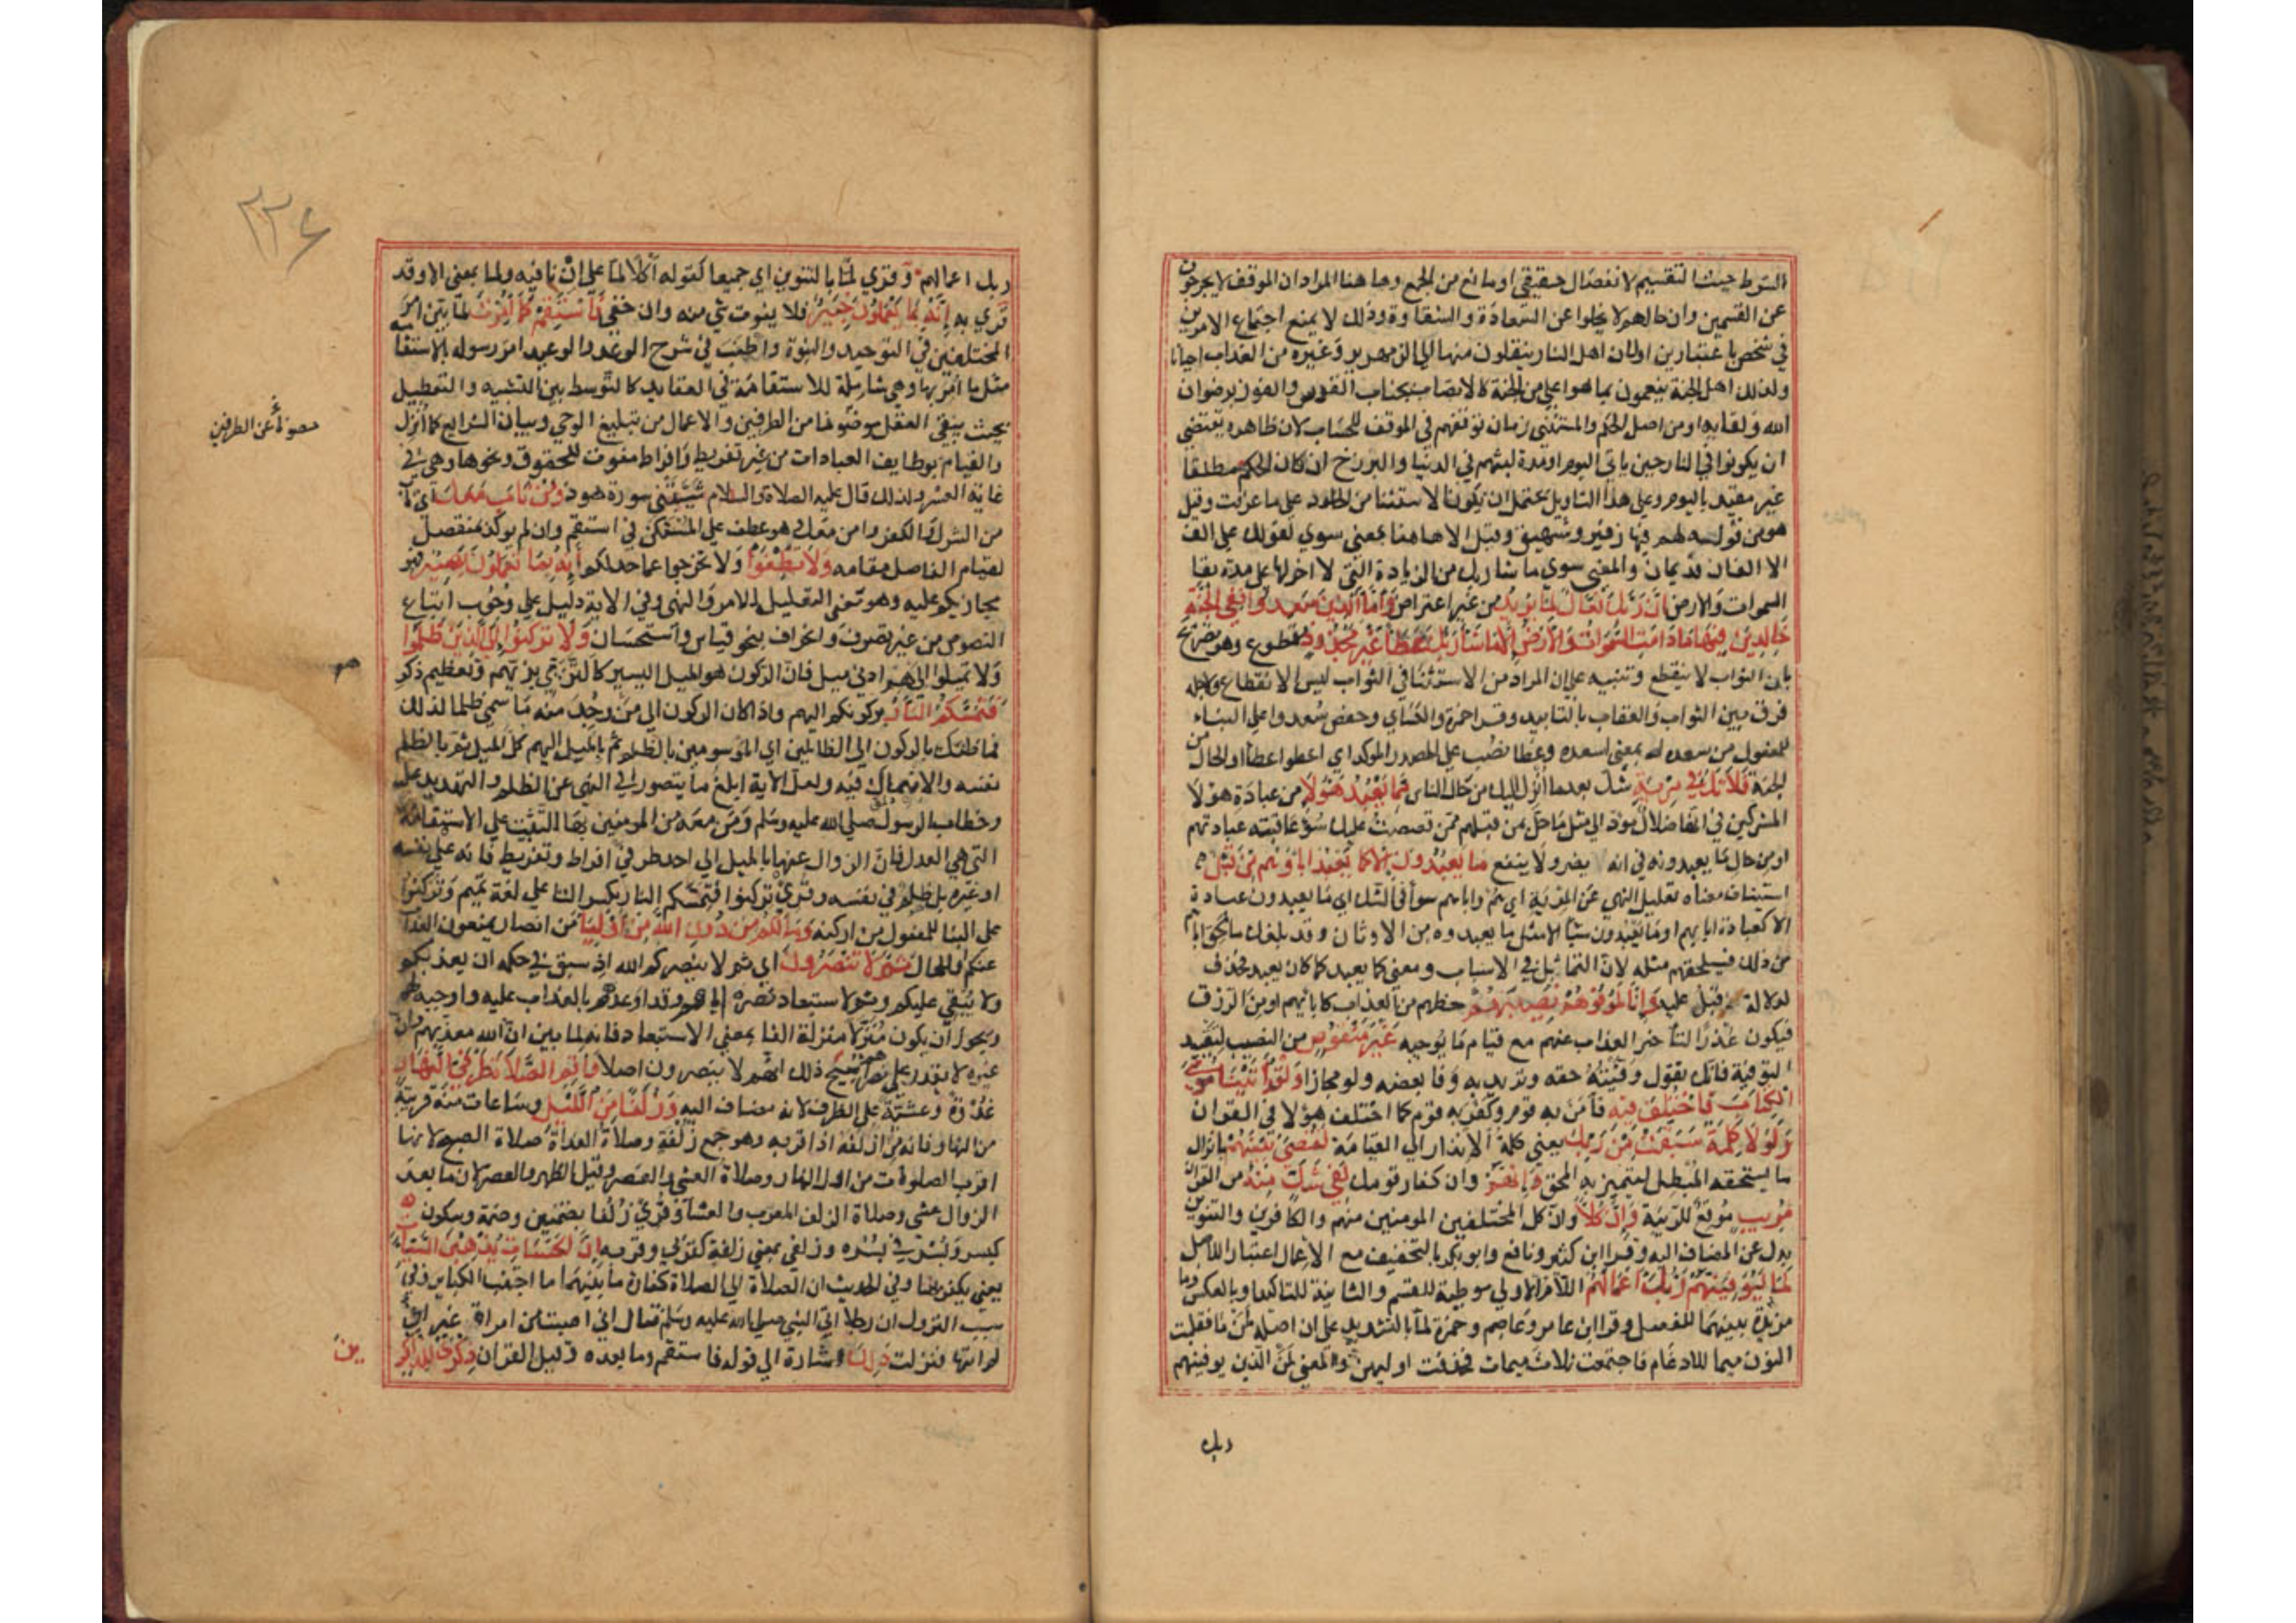 الشرط حيث التقسيم لانفصال حقيقي او مانع من الجمع وهاهنا المراد ان الموقف لا يخرجون
عن القسمين وان حالهم لا يخلوا عن السعادة والشقاوة وذلك لا يمنع اجتماع الامرين
في شخص باعتبارين اولان اهل النار ينقلون منها الي الزمهرير وغيره من العذاب احيانا
ولذلك اهل الجنة ينعمون بما هو اعلي من الجنة كالاتصاب بجناب القدس والفوز برضوان
الله ولقايه او من اصل الحكم والمستثني زمان توقفهم في الموقف للحساب لان ظاهره يقتضي
ان يكونوا في النار حين ياتي اليوم او مدة لبثهم في الدنيا والبرزخ ان كان الحكم مطلقا
غير مقيد باليوم وعلي هذا التاويل يحتمل ان يكون الاستثنا من الخلود علي ما عرفت وقيل
هو من قوله لهم فيها زفير وشهيق وقيل الا هاهنا بمعني سوي كقولك علي الف
الا الفان قديمان والمعني سوي ما شا ربك من الزيادة التي لا اخر لها علي مدة بقا
السموات والارض ان ربك فعال لما يريد من غير اعتراض واما الذين سعدوا ففي الجنة
خالدين فيها ما دامت السموات والارض الا ما شا ربك عطا غير مجذوذ مقطوع وهو تصريح
بان الثواب لا ينقطع وتنبيه علي ان المراد من الاستثنا في الثواب ليس الانقطاع ولاجله
فرق بين الثواب والعقاب بالتابيد وقرا حمزة والكساي وحفص سعدوا علي البناء
للمفعول من سعده الله بمعني اسعده وعطا نصب علي المصدر الموكد اي اعطوا عطا او الحال من
الجنة فلا تك في مرية شك بعد ما انزل اليك من حال الناس مما يعبد هولا من عبادة هولا
المشركين في انها ضلال مود الي مثل ما حل بمن قبلهم ممن قصصت عليك سو عاقبته عبادتهم
او من حال ما يعبدونه في انه يضر ولا ينفع ما يعبدون الا كما يعبد اباوهم من قبل
استيناف معناه تعليل النهي عن المرية اي هم واباهم سوا في الشك اي ما يعبدون عبادة
الا كعبادة اباهم او ما يعبدون شيا الا مثل ما يعبدوه من الاوثان وقد بلغك ما لحق اباهم
من ذلك فسيلحقهم مثله لان التماثل في الاسباب ومعني كما يعبد كما كان يعبد فحذف
لدلالة قبل عليه وانا لموفوهم نصيبهم حظهم من العذاب كابايهم او من الرزق
فيكون عذرا لتاخير العذاب عنهم مع قيام ما يوجبه غير منقوص من النصيب لتقييد
التوفية فانك تقول وفيته حقه وتريد به وفا بعضه ولو مجازا ولقد اتينا موسي
الكتاب فاختلف فيه فامن به قوم وكفر به قوم كما اختلف هولا في القران
ولولا كلمة سبقت من ربك يعني كلمة الانذار الي القيامة لقضي بينهم بانزال
ما يستحقه المبطل ليتميز به المحق وانهم وان كفار قومك لفي شك منه من القران
مريب موقع للريبة وان كلا وان كل المختلفين المومنين منهم والكافرين والتنوين
بدل عن المضاف اليه وقرا ابن كثير ونافع وابو بكر بالتخفيف مع الاعمال اعتبارا للاصل
لما ليوفينهم ربك اعمالهم اللام الاولي موطية للقسم والثانية للتاكيد او بالعكس وما
مزيدة بينهما للفصل وقرا ابن عامر وعاصم وحمزة لما بالتشديد علي ان اصله لمن ما فقلبت
النون ميما للادغام فاجتمعت ثلاث ميمات فحذفت اوليهن والمعني لمن الذين يوفينهم
ربك
٢٢٤
ربك اعمالهم وقري لما بالتنوين اي جميعا كقوله اكلا لما علي ان نافيه ولما بمعني الا وقد
قري به انه بما يعملون خبير فلا يفوت شي منه وان خفي فاستقم كما امرت لما بين امر
المختلفين في التوحيد والنبوة واطنب في شرح الوعد والوعيد امر رسوله بالاستقامة
مثل ما امر بها وهي شاملة للاستقامة في العقايد كالتوسط بين التشبيه والتعطيل
بحيث يبقي العقل مصونا من الطرفين والاعمال من تبليغ الوحي وبيان الشرايع كما انزل
والقيام بوظايف العبادات من غير تفريط وافراط مفوت للحقوق ونحوها وهي في
غاية العسر ولذلك قال عليه الصلاة والسلام شيبتني سورة هود ومن تاب معك اي تاب
من الشرك والكفر وامن معك وهو عطف علي المستكن في استقم وان لم يوكد بمنفصل
لقيام الفاصل مقامه ولا تطغوا ولا تخرجوا عما حد لكم انه بما تعملون بصير فهو
مجازيكم عليه وهو في معني التعليل للامر والنهي وفي الاية دليل علي وجوب اتباع
النصوص من غير تصرف وانحراف بنحو قياس واستحسان ولا تركنوا الي الذين ظلموا
ولا تميلوا اليهم ادني ميل فان الركون هو الميل اليسير كالتزيي بزيهم وتعظيم ذكر
فتمسكم النار بركونكم اليهم واذا كان الركون الي من وجد منه ما سمي ظلما لذلك
فما ظنك بالركون الي الظالمين اي الموسومين بالظلم ثم بالميل اليهم كل الميل ثم بالظلم
نفسه والانهماك فيه ولعل الاية ابلغ ما يتصور في النهي عن الظلم والتهديد عليه
وخطاب الرسول صلي الله عليه وسلم ومن معه من المومنين بها للتثبيت علي الاستقامة
التي هي العدل فان الزوال عنها بالميل الي احد طرفي افراط وتفريط فانه علي نفسه
او غيره بل ظلم في نفسه وقري تركنوا فتمسكم النار بكسر التا علي لغة تميم وتركنوا
علي البنا للمفعول من اركنه وما لكم من دون الله من اوليا من انصار يمنعون العذاب
عنكم والحال ثم لا تنصرون اي ثم لا ينصركم الله اذ سبق في حكمه ان يعذبكم
ولا يبقي عليكم وثم لاستبعاد نصره اياهم وقد اوعدهم بالعذاب عليه واوجبه لهم
ويجوز ان يكون منزلا منزلة الفا بمعني الاستبعاد فانه لما بين ان الله معذبهم وان
غيره لا يقدر علي نصرهم انتج ذلك انهم لا ينصرون اصلا واقم الصلاة طرفي النهار
غدوة وعشية علي الظرف لانه مضاف اليه وزلفا من الليل وساعات منه قريبة
من النهار فانه من ازلفه اذا قربه وهو جمع زلفة وصلاة الغداة صلاة الصبح لانها
اقرب الصلوات من اول النهار وصلاة العشي العصر وقيل الظهر والعصر لان ما بعد
الزوال عشي وصلاة الزلف المغرب والعشا وقري زلفا بضمتين وضمة وسكون
كبسر وبسر في بسره وزلفي بمعني زلفة كقربي وقربه ان الحسنات يذهبن السيات
يعني يكفرنها وفي الحديث ان الصلاة الي الصلاة كفارة ما بينهما ما اجتنب الكباير وفي
سبب النزول ان رجلا اتي النبي صلي الله عليه وسلم فقال اني اصبت من امراة غير اني
لم اتها فنزلت ذلك اشارة الي قوله فاستقم وما بعده وقيل القران ذكري للذاكر
ين
مصونا عن الطرفين